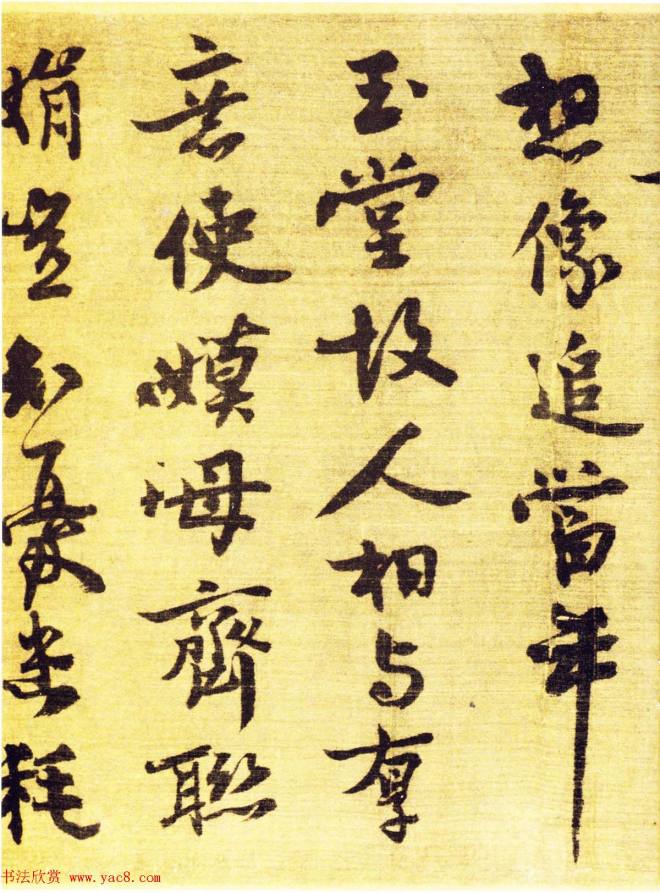 想像追當年
玉堂故人相與厚
意使嫫母齊聯
娟豈知憂患耗
书法欣赏 www.yac8.com